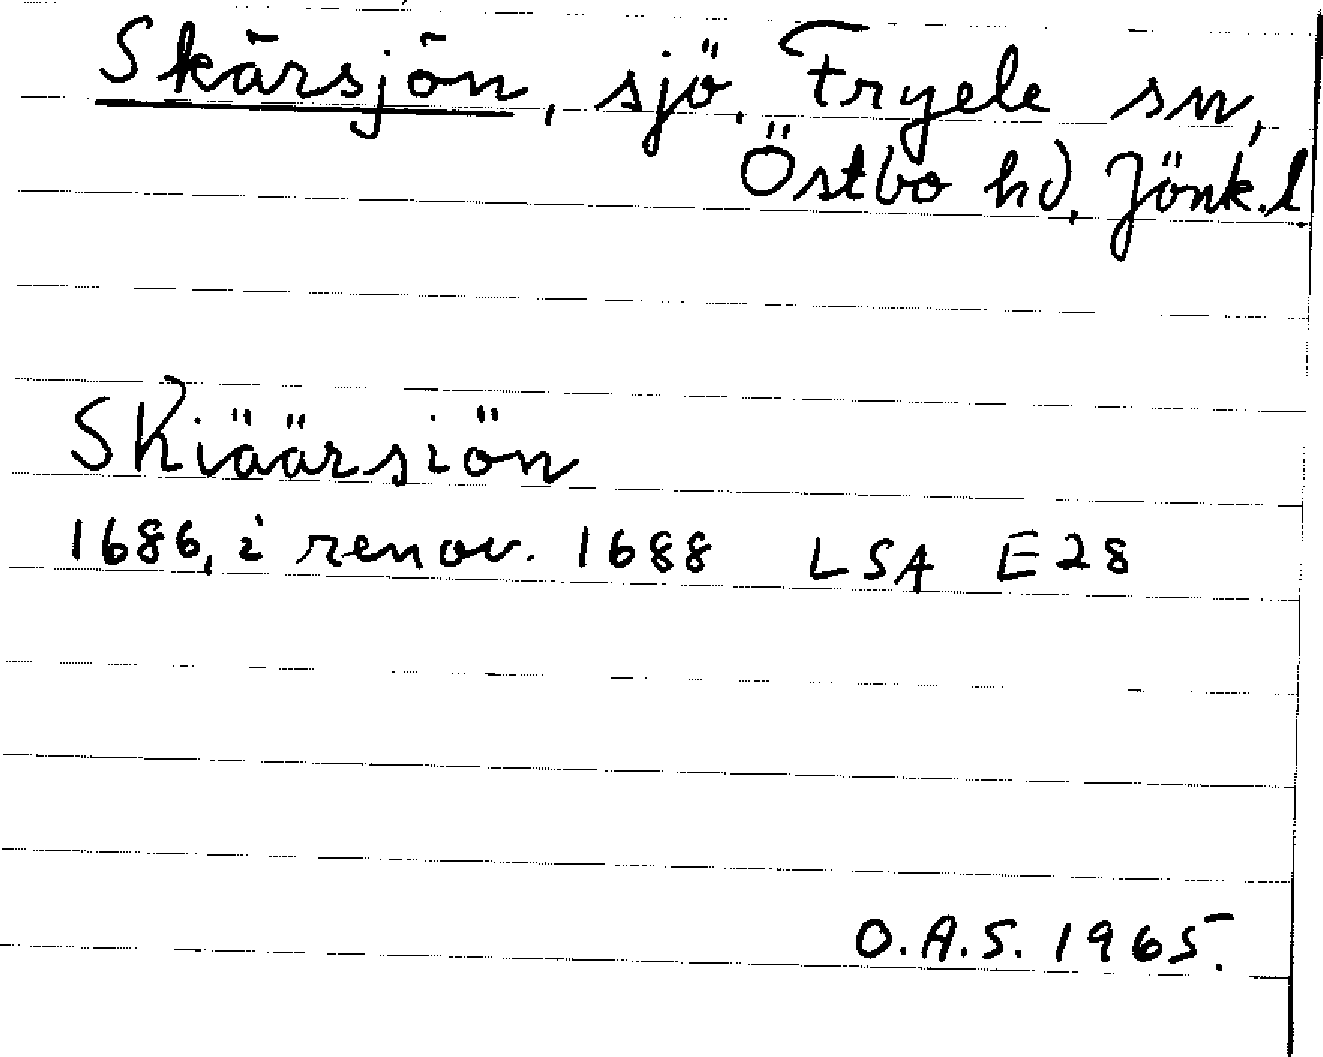 Skärsjön, sjö. Fryele sn,
Östbo hd, Jönk.l.
Skiäärsiön
1686, i renov. 1688 LSA E28
O.A.S. 1965.